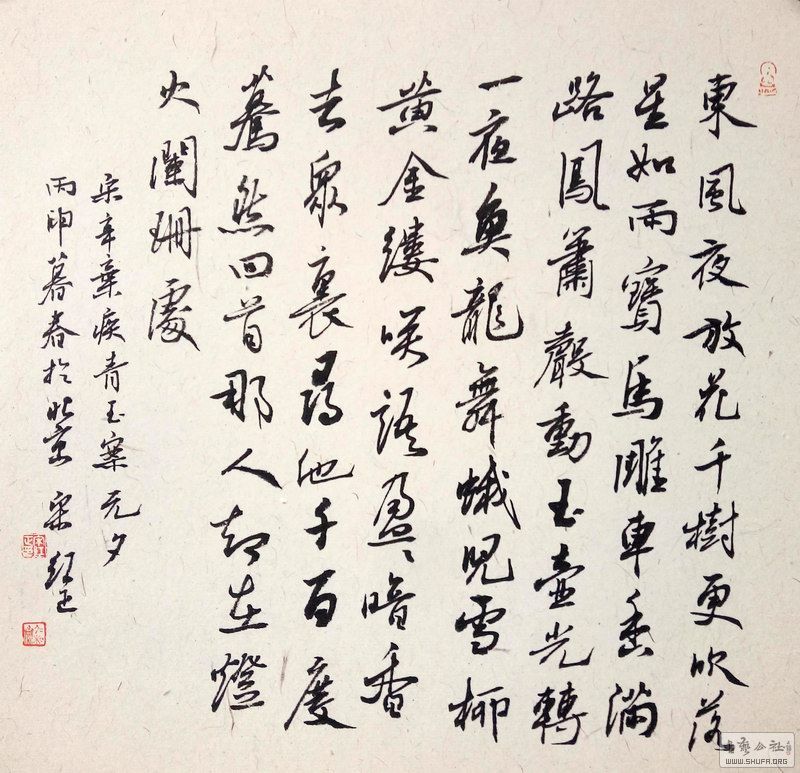 東風夜放花千樹更吹落
星如雨寶馬雕車香滿
路鳳簫聲動玉壺光轉
一夜魚龍舞蛾兒雪柳
黃金縷咲語盈〻暗香
去眾裏尋他千百度
驀然回首那人却在燈
火瀾珊處
宋辛棄疾青玉案元夕
丙申暮春於北京 宋
書藝公社
WWW.SHUFA.ORG